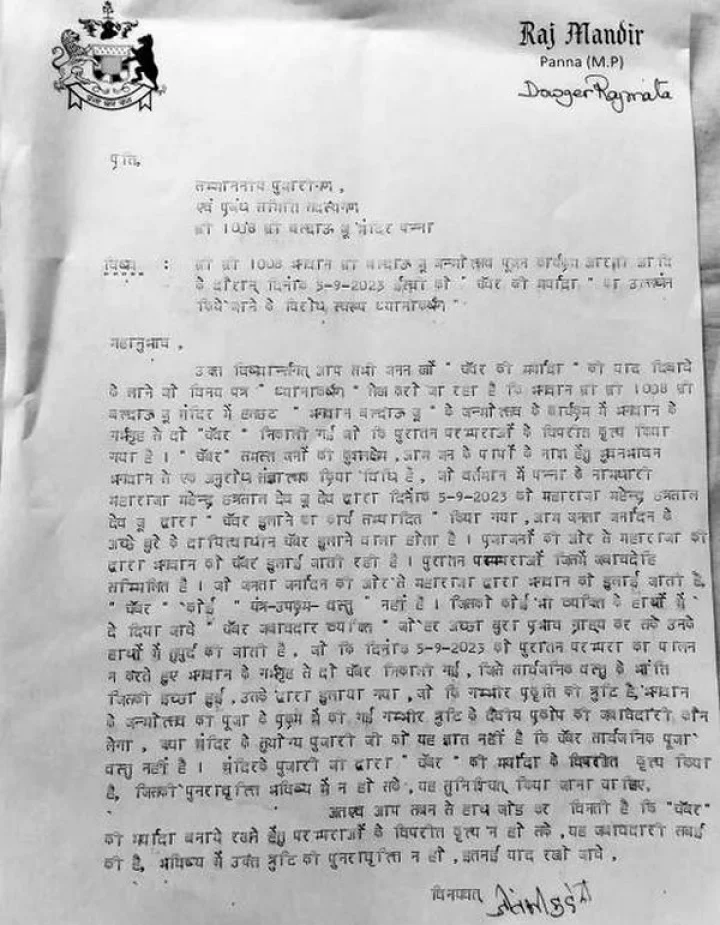 Raj Mandir
Panna (M.P)
Dowger Rajmata
प्रति,
सम्माननीय पुजारीगण,
एवं प्रबंध समिति सदस्यगण
श्री 1008 श्री बल्दाऊ जू मंदिर पन्ना
विषय : श्री श्री 1008 भगवान श्री बल्दाऊ जू जन्मोत्सव पूजन कार्यक्रम आरती आदि
के दौरान् दिनांक 5-9-2023 ईस्वी को " चॅवर की मर्यादा " का उल्लंघन
किये जाने के विरोध स्वरूप ध्यानाकर्षण "
महानुभाव,
उक्त विषयान्तर्गत् आप सभी जनन को " चॅवर की मर्यादा " की याद दिलाये
के लाने जो विनय पत्र " ध्यानाकर्षण " पेश करो जा रहा है कि भगवान श्री श्री 1008 श्री
बल्दाऊ जू मंदिर में हलछट " भगवान बल्दाऊ जू " के जन्मोत्सव के कार्यक्रम में भगवान के
गर्भगृह से दो "चॅवर" निकाली गई जो कि पुरातन परम्पराओं के विपरीत कृत्य किया
गया है । " चॅवर" समस्त जनों की कुशलक्षेम, आम जन के पापों के नाश हेतु भुवनभावन
भगवान से एक अनुरोध संज्ञात्मक क्रिया विधि है, जो वर्तमान में पन्ना के नामधारी
महाराजा महेन्द्र छत्रसाल देव जू देव द्वारा दिनांक 5-9-2023 को महाराजा महेन्द्र छत्रसाल
देव जू द्वारा " चॅवर डुलाने का कार्य सम्पादित" किया गया, आम जनता जर्नादन के
अच्छे बुरे के दायित्वाधीन चॅवर डुलाने वाला होता है । प्रजाजनों की ओर से महाराजा की
द्वारा भगवान को चॅवर डुलाई जाती रही है । पुरातन परम्पराओं जिसमें जबावदेहि
सम्मिलित है । जो जनता जर्नादन की ओर से महाराजा द्वारा भगवान को डुलाई जाती है,
" चॅवर" कोई " यंत्र-उपक्रम- वस्तु " नहीं है । जिसको कोई भी व्यक्ति के हाथों में
दे दिया जावे " चॅवर जबावदार व्यक्ति " जो हर अच्छा बुरा प्रभाव ग्राह्य कर सके उनके
हाथों में सुपुर्द की जाती है, जो कि दिनांक 5-9-2023 को पुरातन परम्परा का पालन
न करते हुए भगवान के गर्भगृह से दो चॅवर निकाली गई, जिसे सार्वजनिक वस्तु के भांति
जिसकी इच्छा हुई, उसके द्वारा डुलाया गया, जो कि गम्भीर प्रकृति की त्रुटि है, भगवान
के जन्मोत्सव की पूजा के प्रक्रम में की गई गम्भीर त्रुटि के दैवीय प्रकोप की जबाबदारी कौन
लेगा, क्या मंदिर के सुयोग्य पुजारी जी को यह ज्ञात नहीं है कि चॅवर सार्वजनिक पूजा
वस्तु नहीं है । मंदिरके पुजारी जी द्वारा " चॅवर " की मर्यादा के विपरीत कृत्य किया
है, जिसकी पुनरावृत्ति भविष्य में न हो सके, यह सुनिश्चित् किया जाना चाहिए.
अतएव आप सबन से हाथ जोड़ कर विनती है कि "चॅवर"
की मर्यादा बनाये रखने हेतु परम्पराओं के विपरीत कृत्य न हो सके, यह जबावदारी सबई
की है, भविष्य में उक्त त्रुटि की पुनरावृत्ति न हो, इतनई याद रखो जावे,
विनयवत्